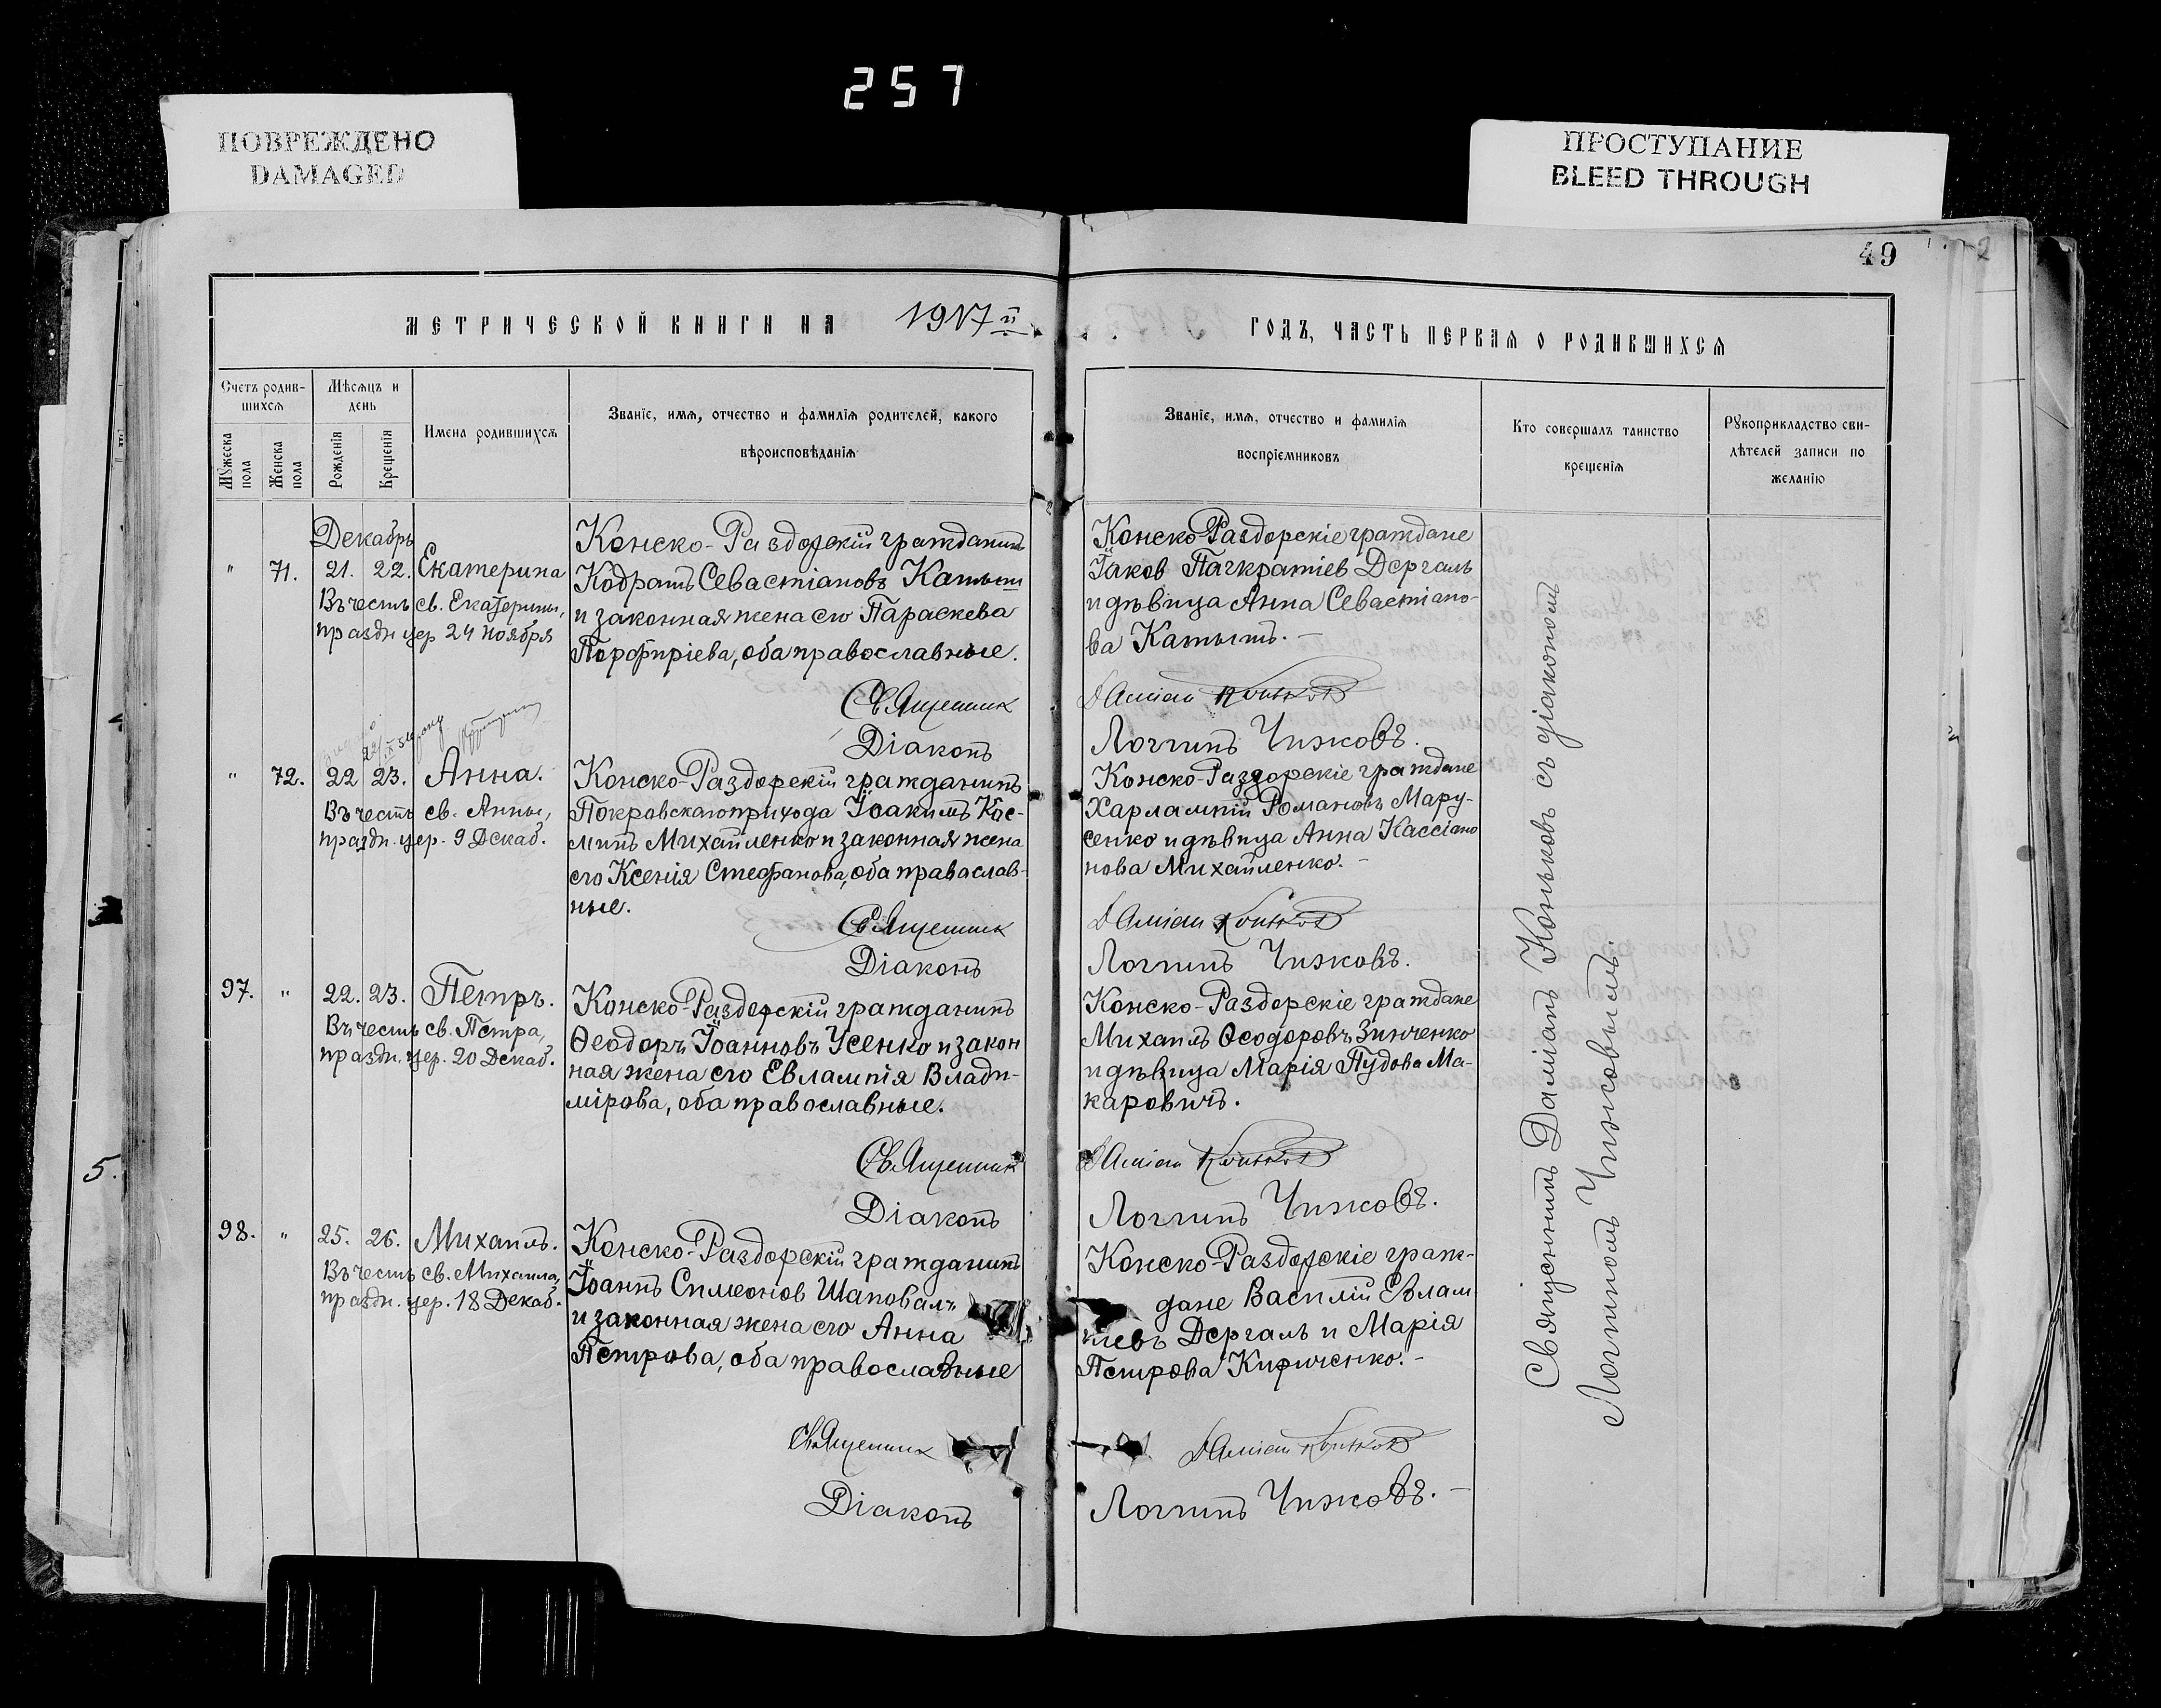 257
ПОВРЕЖДЕНО
DAMAGED
ПРОСТУПАНИЕ
BLEED THROUGH
49
МЕТРИЧЕСКОЙ КНИГИ НА 1917 й
ГОДЪ, ЧАСТЬ ПЕРВАЯ О РОДИВШИХСЯ
Счетъ родив-
шихся
Мѣсяцъ и
день
Мужеска пола
Женска пола
Рожденія
Крещенія
Имена родившихся
Званіе, имя, отчество и фамилія родителей, какого
вѣроисповѣданія
Званіе, имя, отчество и фамилія
воспріемниковъ
Кто совершалъ таинство
крещенія
Рукоприкладство сви-
дѣтелей записи по
желанію
Декабрь
" 71. 21. 22. Екатерина
Въ честь св. Екатерины,
праздн. цер. 24 ноября
Конско-Раздорскій гражданинъ
Кодратъ Севастіановъ Катыш
и законная жена его Параскева
Порфиріева, оба православные.
Священник
Діаконъ
Конско-Раздорскіе граждане
Іаков Панкратіев Дергаль
и дѣвица Анна Севастіано-
ва Катышъ. –
Даміан Коньков
Логгинъ Чижовъ.
" 72. 22 23. Анна.
Въ честь св. Анны,
праздн. цер. 9 Декаб.
Конско-Раздорскій гражданинъ
Покровскаго прихода Іоакимъ Кос-
минъ Михайленко и законная жена
его Ксенія Стефанова, оба православ-
ные.
Священник
Діаконъ
Конско-Раздорскіе граждане
Харлампій Романовъ Мару-
сенко и дѣвица Анна Кассіано
нова Михайленко. –
Даміан Коньков
Логгинъ Чижовъ.
97. " 22. 23. Петръ.
Въ честь св. Петра,
праздн. цер. 20 Декаб.
Конско-Раздорскій гражданинъ
Ѳеодоръ Іоанновъ Усенко и закон
ная жена его Евлампія Влади-
мірова, оба православные.
Священник
Діаконъ
Конско-Раздорскіе граждане
Михаилъ Ѳеодоровъ Зинченко
и дѣвица Марія Пудова Ма-
каровичъ.
Даміан Коньков
Логгинъ Чижовъ.
98. " 25. 26. Михаилъ.
Въ честь св. Михаила,
праздн. цер. 18 Декаб.
Конско-Раздорскій гражданинъ
Іоаннъ Симеонов Шаповалъ
и законная жена его Анна
Петрова, оба православные
Священник
Діаконъ
Конско-Раздорскіе граж-
дане Василій Евлам
піевъ Дергаль и Марія
Петрова Кириченко. –
Даміан Коньков
Логгинъ Чижовъ. –
Священникъ Даміанъ Коньковъ съ діакономъ
Логгиномъ Чижовымъ.
5.